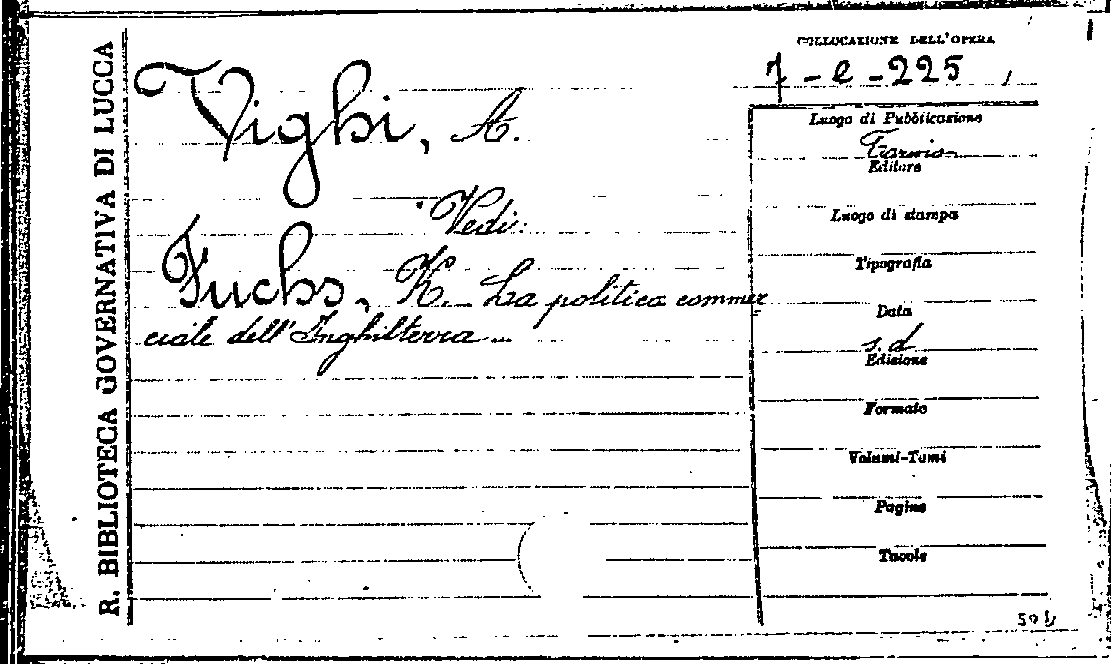 R. BIBLIOTECA GOVERNATIVA DI LUCCA
COLLOCAZIONE DELL'OPERA
7-e-225
Vighi, A.
Vedi:
Fuchs, K. - La politica commer
ciale dell'Inghilterra...
Luogo di Pubblicazione
Editore
Luogo di stampa
Tipografia
Data
s. d
Edizione
Formato
Volumi-Tomi
Pagine
Tavole